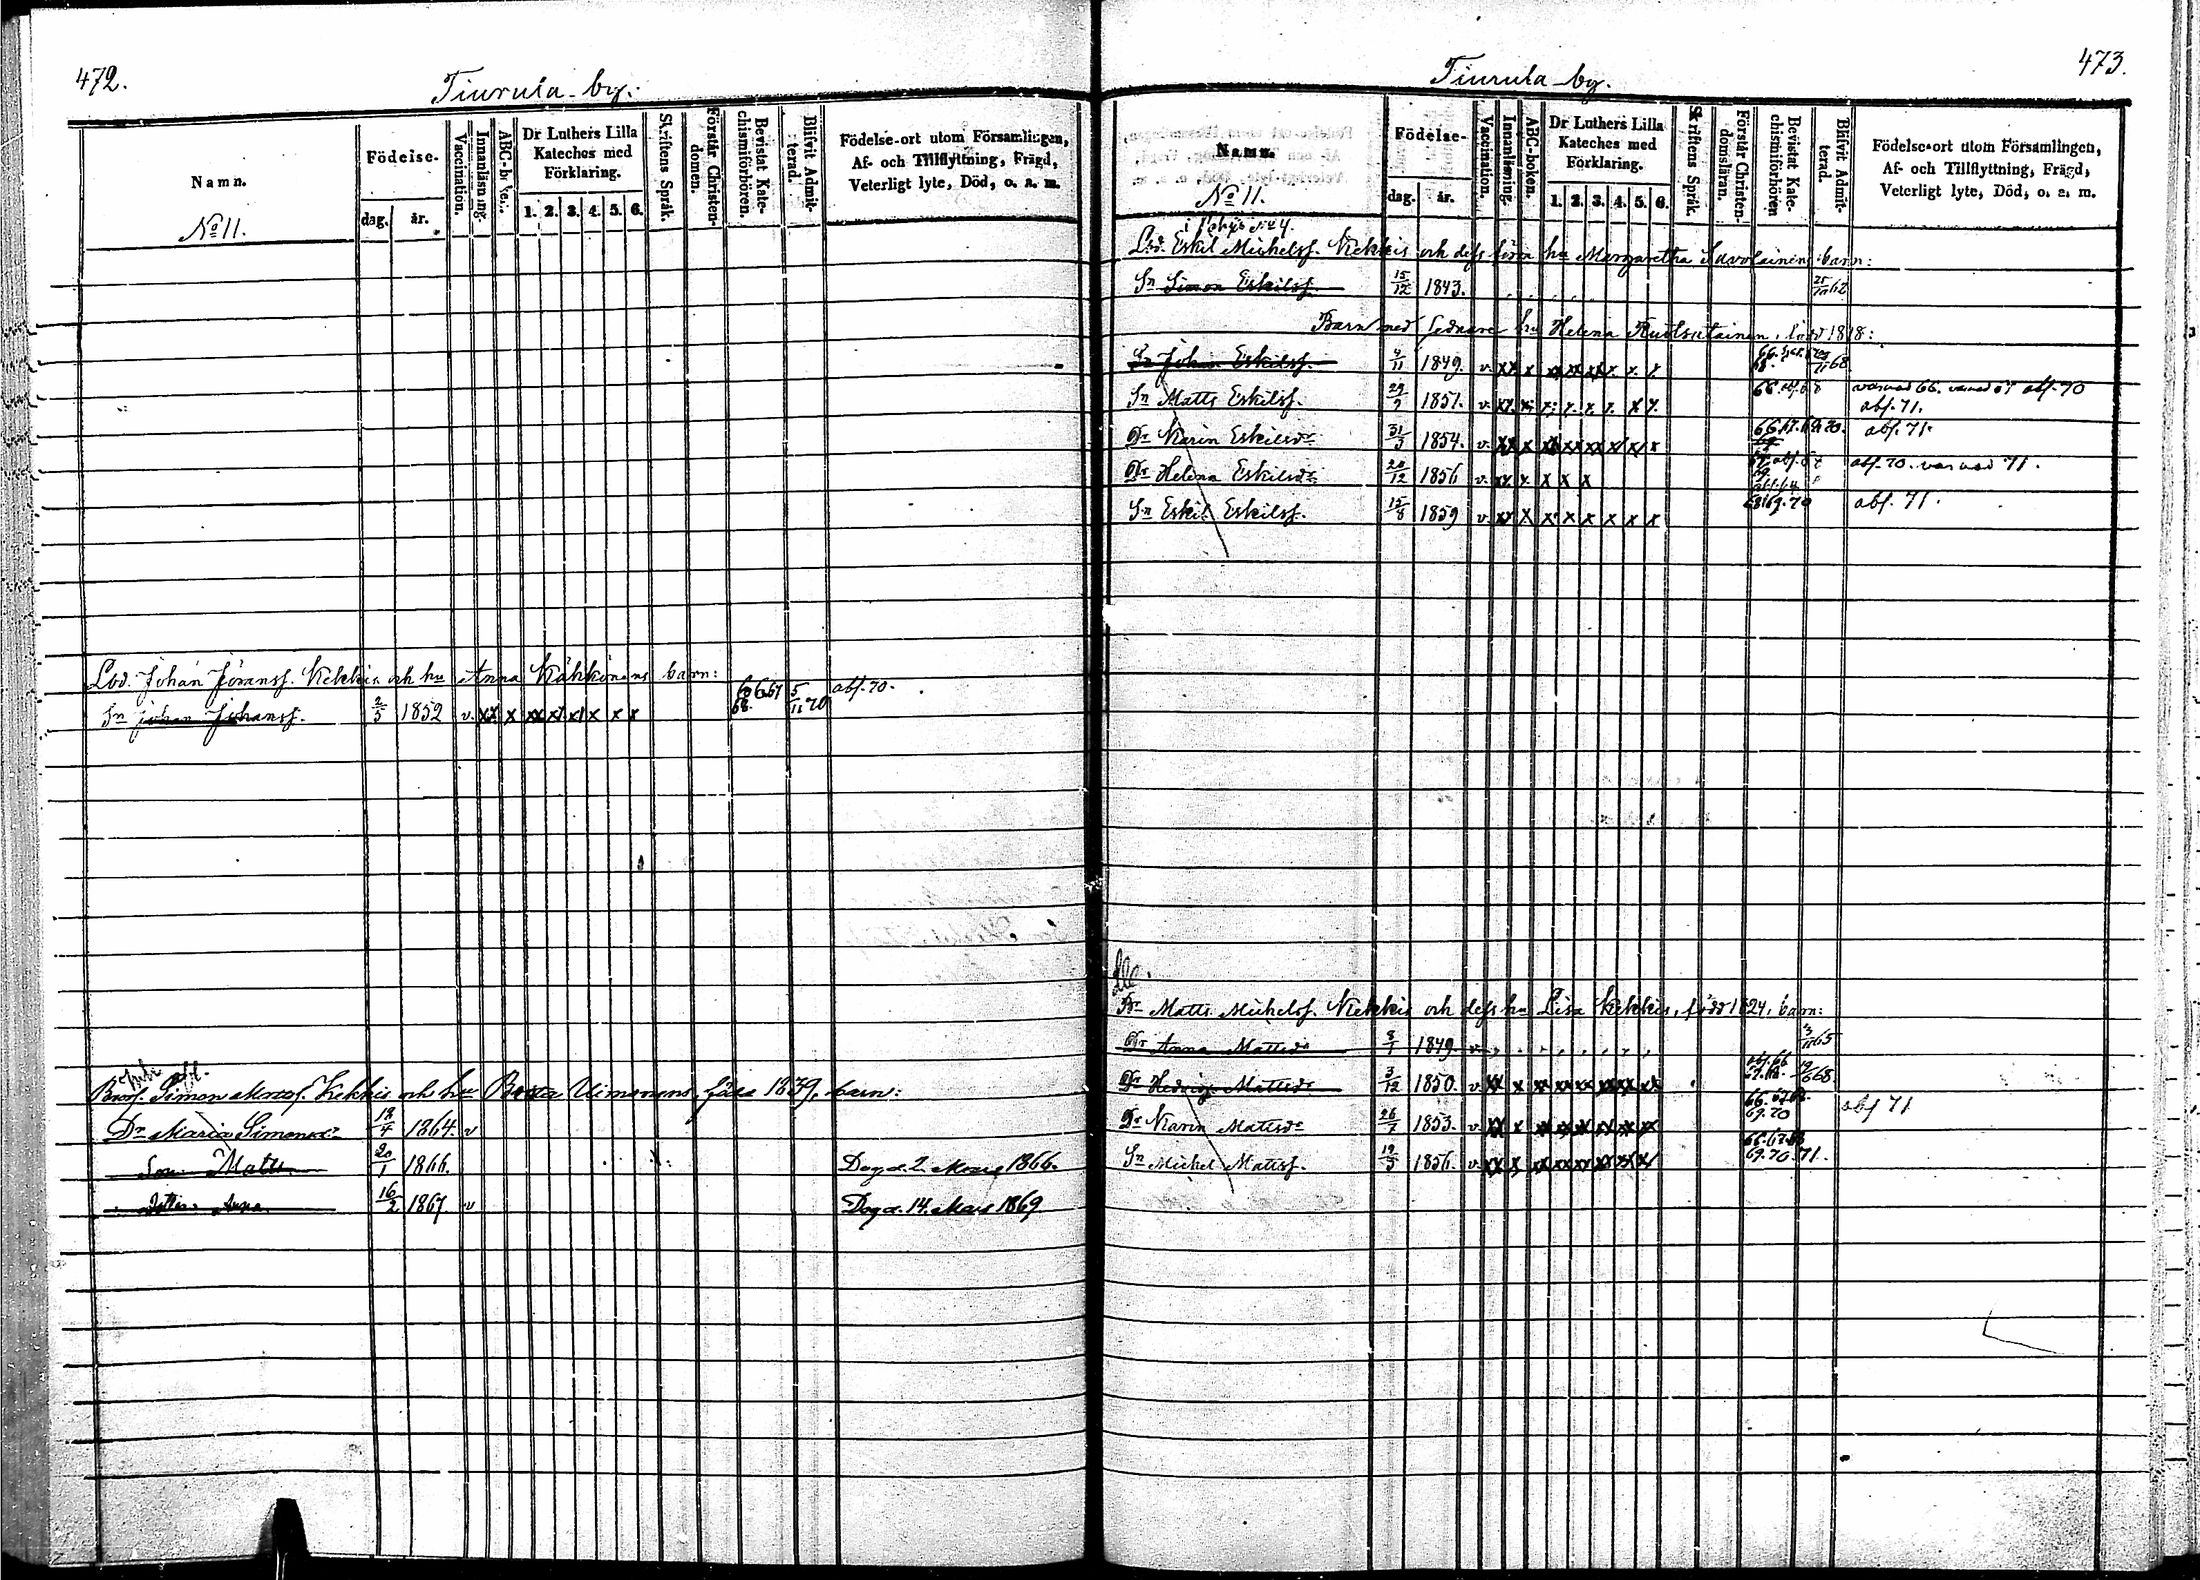 472.
Tiurula by.
Namn.
Födelse-
dag. år.
Vaccination.
Innanläsning.
ABC-boken.
Dr Luthers Lilla Kateches med Förklaring.
1. 2. 3. 4. 5. 6.
Skriftens Språk.
Förstår Christendomen.
Bevistat Katechismiförhören.
Blifvit Admitterad.
Födelse-ort utom Församlingen,
Af- och Tillflyttning, Frägd,
Veterligt lyte, Död, o. a. m.
No 11.
Lod. Johan Göransf. Kekkis och hu Anna Kähkönens barn:
Sn Johan Johansf. 2/5 1852 v. xx x xx xx xx x x x 66.67 68. 5/11 70 abf. 70.
Simon Kekkis och hu Uimonens, född 1839, barn:
Dr Maria Simonsdr 19/4 1864. v
Son Matts 20/1 1866. Dog d. 2. Mars 1866.
Dotter Anna 16/2 1867 v Dog d. 14. Mars 1869
473.
Tiurula by.
Namn.
Födelse-
dag. år.
Vaccination.
Innanläsning.
ABC-boken.
Dr Luthers Lilla Kateches med Förklaring.
1. 2. 3. 4. 5. 6.
Skriftens Språk.
Förstår Christendomsläran.
Bevistat Katechismiförhören
Blifvit Admitterad.
Födelse-ort utom Församlingen,
Af- och Tillflyttning, Frägd,
Veterligt lyte, Död, o. a. m.
No 11.
Lod. Eskil Michelsf. Kekkis och dess förra hu Margaretha Savolainens barn:
Sn Simon Eskilsf. 15/12 1843. 62
Barn med sednare hu Helena Ruotsalainen, född 1818:
Sn Johan Eskilsf. 4/11 1849. v. xx x xx xx xx x x x 68
Sn Matts Eskilsf. 29/9 1851. v. 66 varnad 66. varnad 67 abf. 70
abf. 71.
Dr Karin Eskilsdr 31/3 1854. v. abf. 71.
Dr Helena Eskilsdr 20/12 1856 v. xx x x x x abf. 70. varnad 71.
Sn Eskil Eskilsf. 15/8 1859 v. xx x x x x x x x 68 69. 70 abf. 71.
Matts Michelsf. Kekkis och dess hu Lisa Kekkis, född 1824, barn:
Dr Anna Mattsdr 8/1 1849 v 65
Dr Hedvig Mattsdr 3/12 1850. v. 68
Dr Karin Mattsdr 1853. v. 66. 67 68. 69. 70 abf 71
Sn Michel Mattsf. 19/5 1856. v. 66. 67. 68 69. 70. 71.